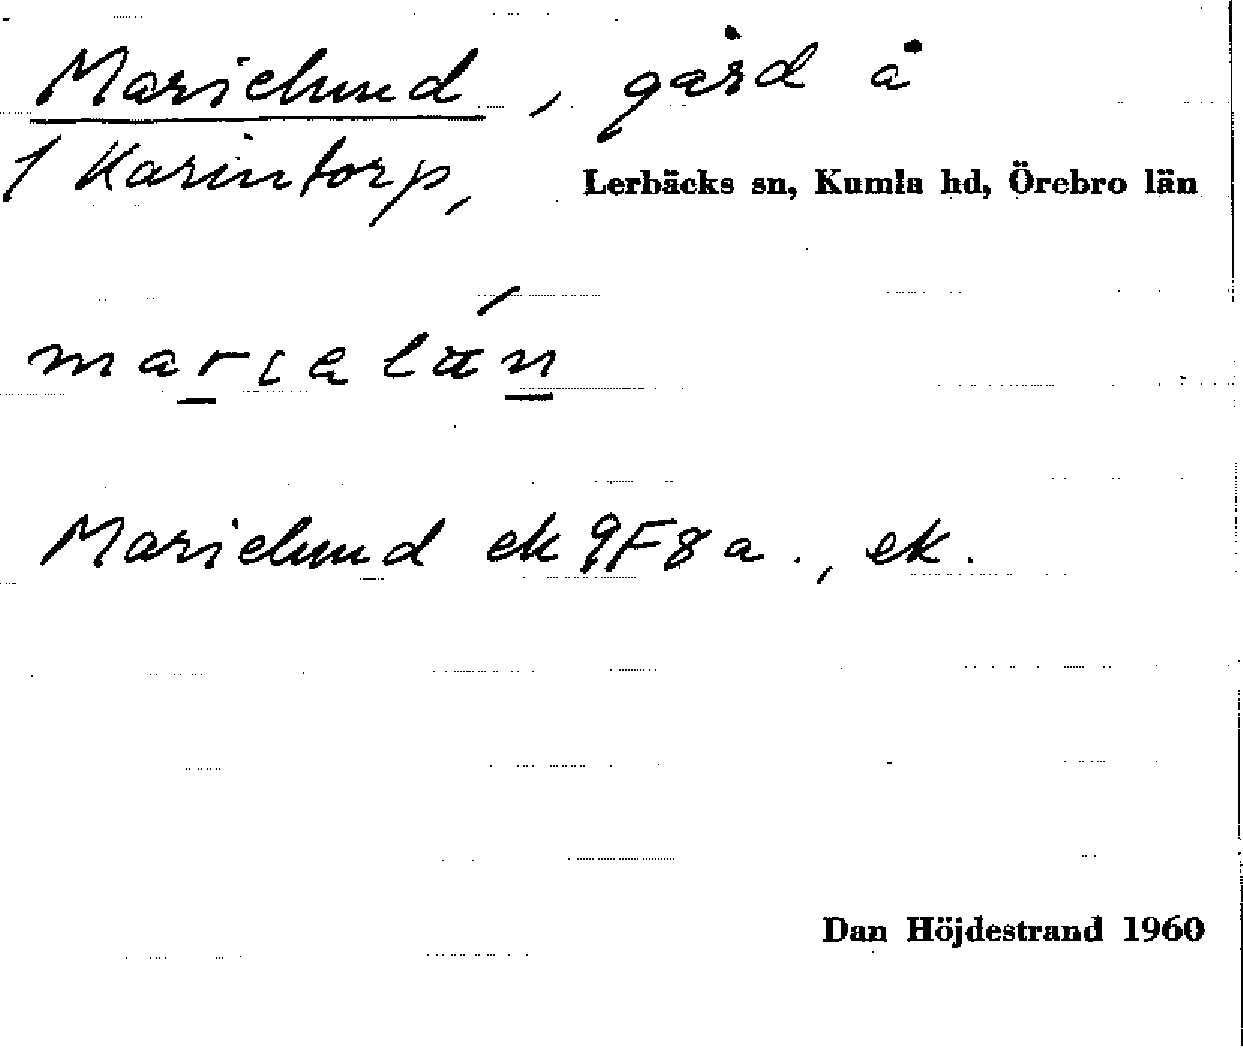 Marielund, gård å
1 Karintorp, Lerbäcks sn, Kumla hd, Örebro län
marıelán
Marielund ek 9F8a., ek.
Dan Höjdestrand 1960